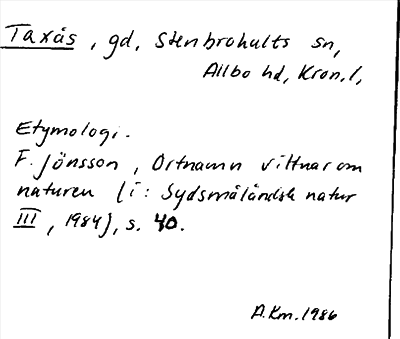 Taxås, gd, Stenbrohults sn,
Allbo hd, Kron.l,
Etymologi.
F. Jönsson, Ortnamn vittnar om
naturen (i: Sydsmåländsk natur
III, 1984), s. 40.
A.Km. 1986